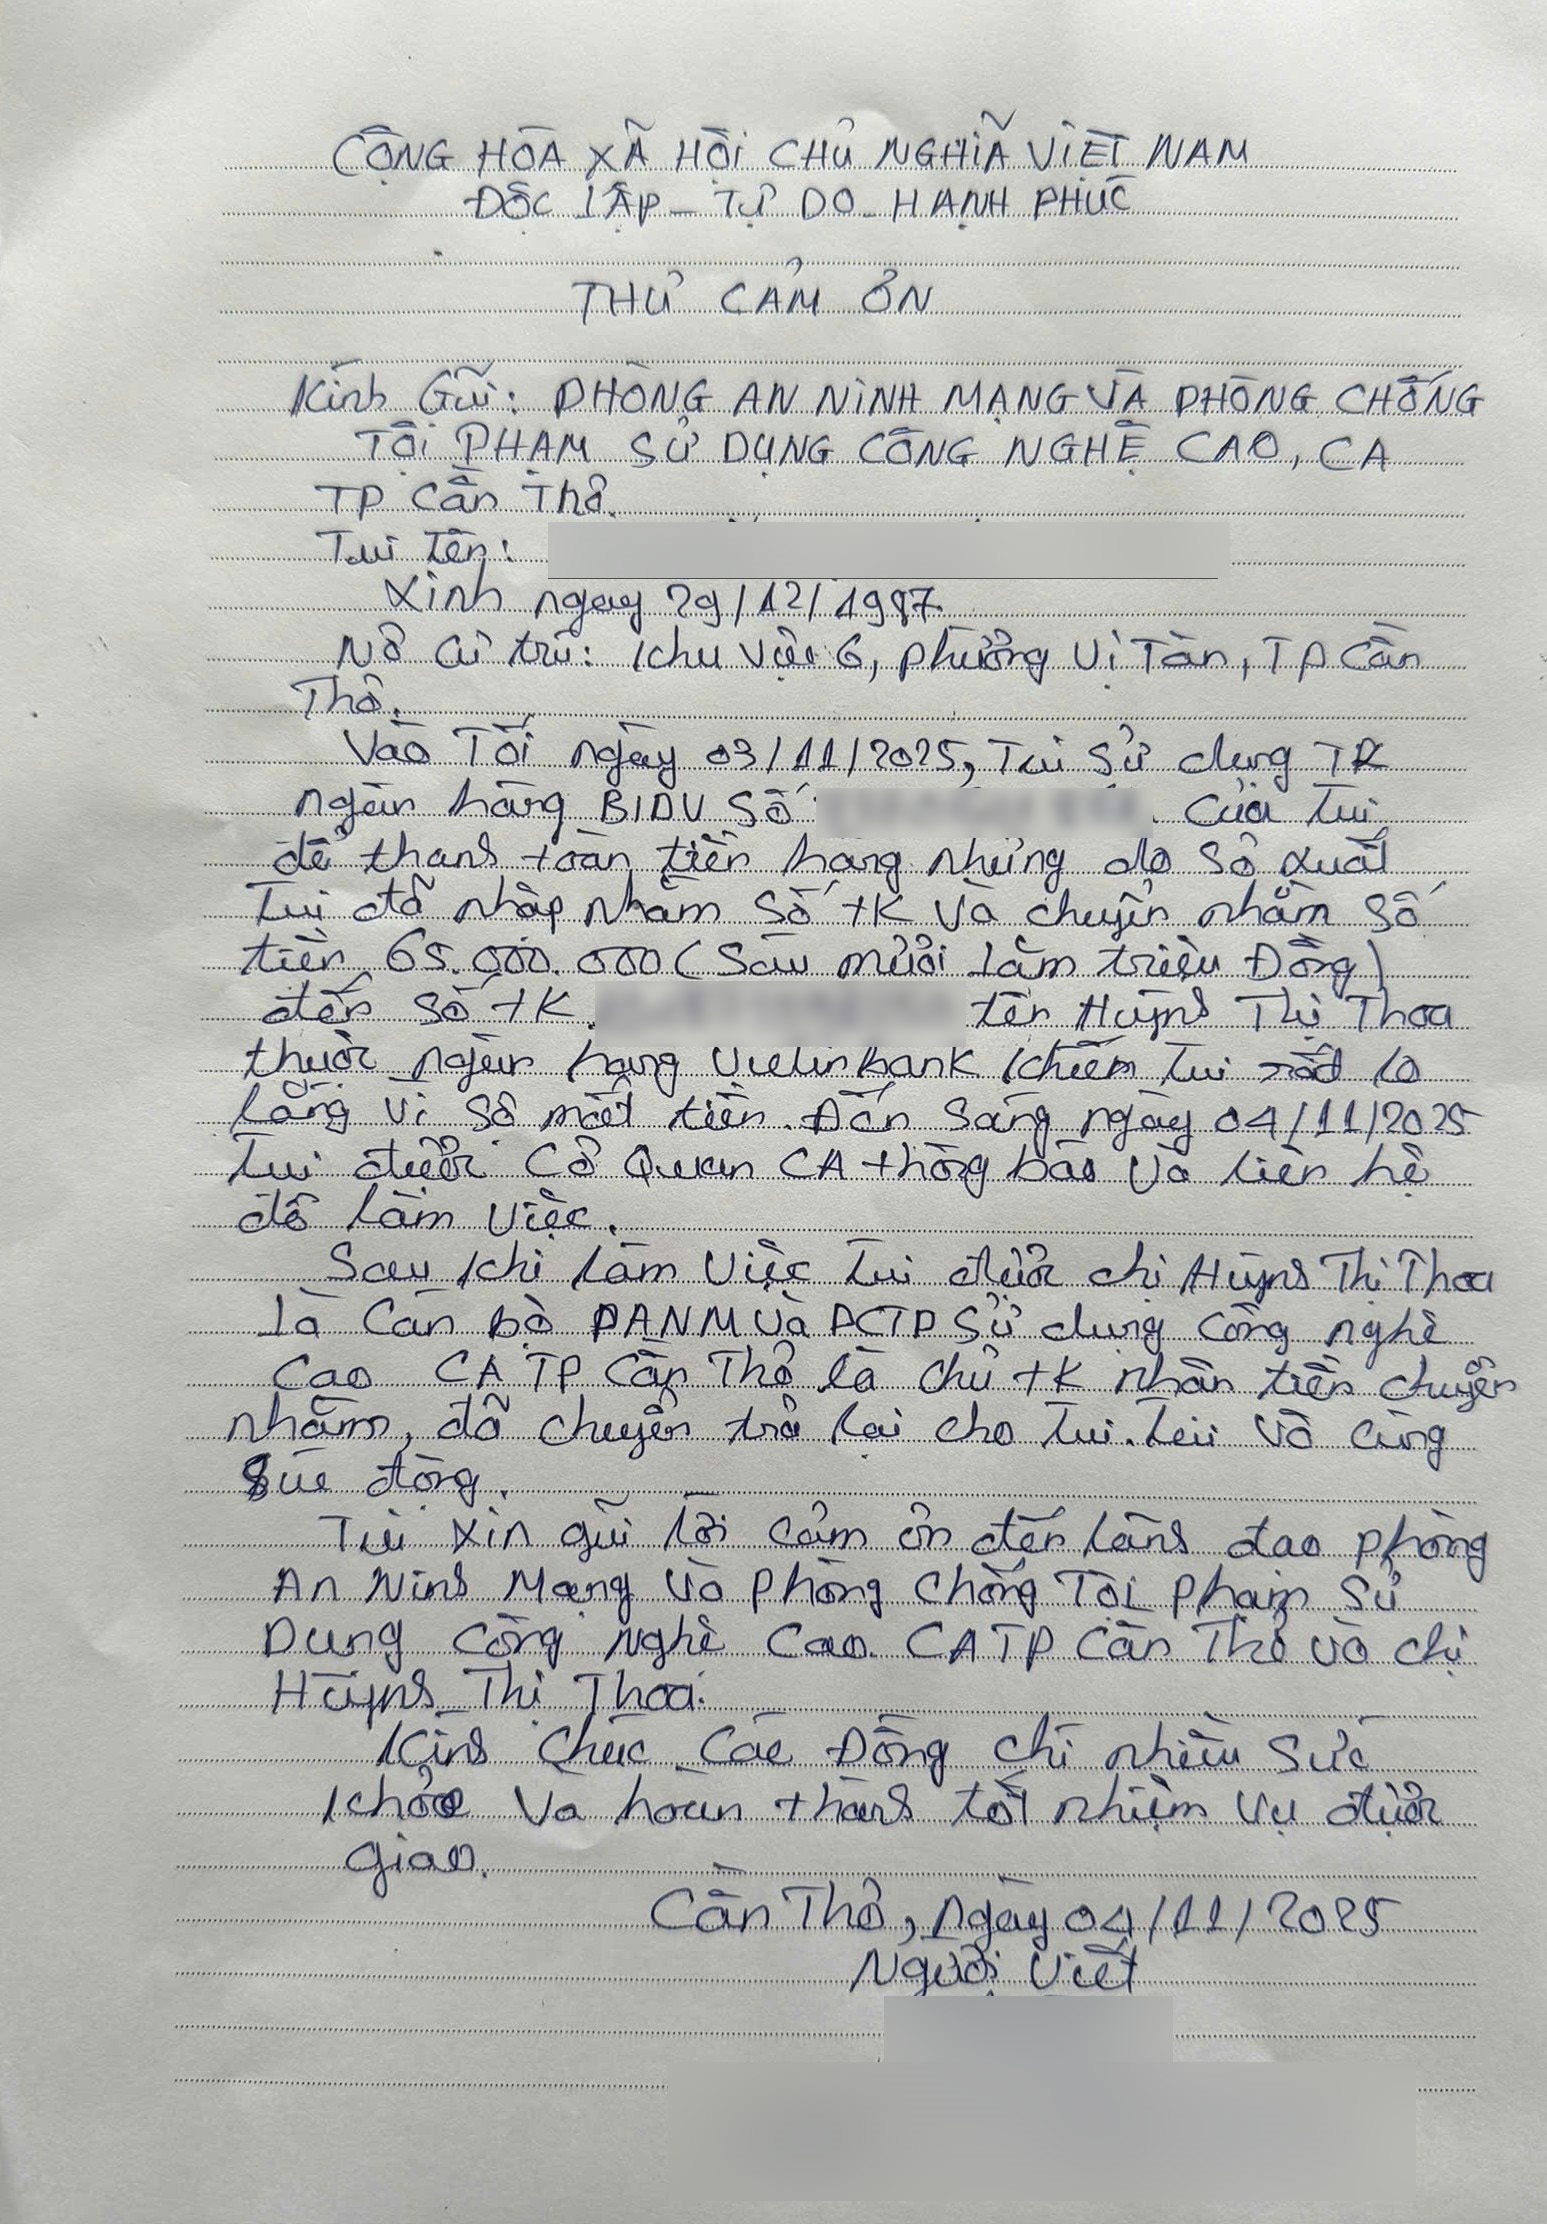 CỘNG HÒA XÃ HỘI CHỦ NGHĨA VIỆT NAM
ĐỘC LẬP - TỰ DO - HẠNH PHÚC
THƯ CẢM ƠN
Kính Gửi: PHÒNG AN NINH MẠNG VÀ PHÒNG CHỐNG
TỘI PHẠM SỬ DỤNG CÔNG NGHỆ CAO, CA
TP Cần Thơ.
Tui tên:
Xinh ngay 29/12/1987
Nơ cư trú: khu vực 6, phường Vị Tân, TP Cần
Thơ.
Vào Tối ngày 03/11/2025, Tui sử dụng TK
ngân hàng BIDV số của tui
để thanh toán tiền hang nhưng do sơ xuất
Tui đã nhập nhầm số tk và chuyển nhầm số
tiền 65.000.000 (Sáu mươi lăm triệu Đồng)
đến số tk tên Huỳnh Thị Thoa
thuộc ngân hang Vietinbank khiếm tui rất lo
lắng vì sợ mất tiền. Đến sáng ngày 04/11/2025
tui được Cơ Quan CA thông báo và liên hệ
để làm việc.
Sau khi làm việc tui được chị Huỳnh Thị Thoa
là Cán bộ PANM và PCTP Sử dụng Công nghệ
Cao CA TP Cần Thơ là chủ tk nhận tiền chuyển
nhầm, đã chuyển trả lại cho tui. Tui vô cùng
súc động.
Tui xin gửi lời cảm ơn đến lãnh đạo phòng
An Ninh Mạng và Phòng Chống Tội Phạm Sử
Dụng Công Nghệ Cao CATP Cần Thơ và chị
Huỳnh Thị Thoa.
Kính Chúc Các Đồng chí nhiều sức
khỏe và hoàn thành tốt nhiệm vụ được
giao.
Cần Thơ, ngày 04/11/2025
Người Viết